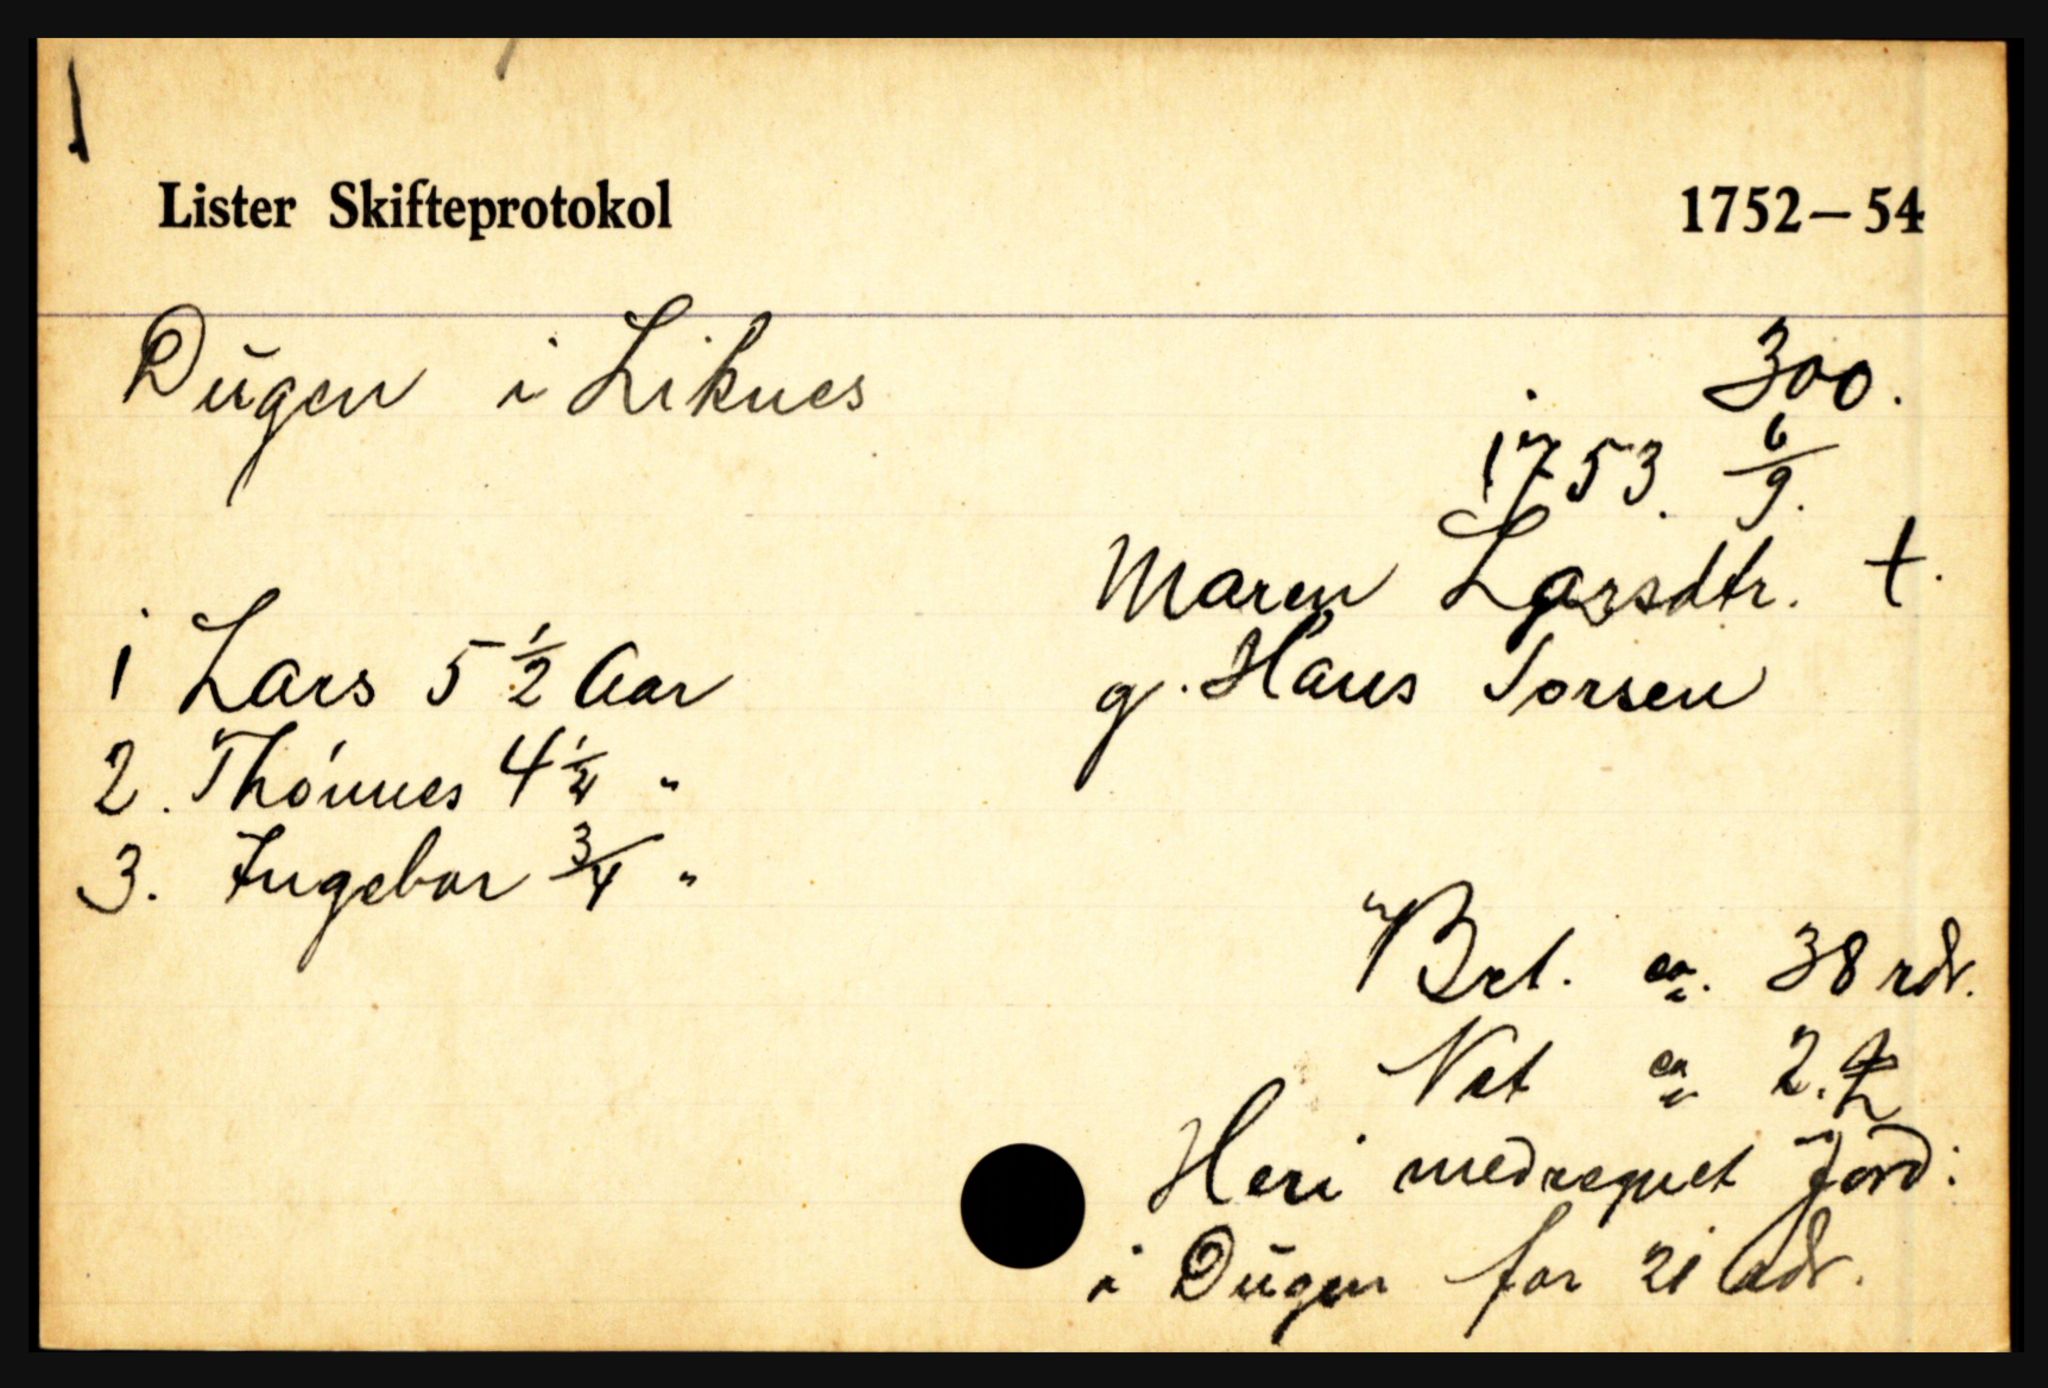 Lister Skifteprotokol 1752—54
Dŭgen i Liknes 300.
1753. 6/9.
Maren Larsdtr. †.
g. Hans Torsen
1 Lars 5 1/2 Aar
2. Thónnes 4 1/4 "
3. Ingebor 3/4 "
Brt. ca. 38 rdr.
Net ca 2.
Heri medregnet jord:
i Dŭgen for 21 rdr.